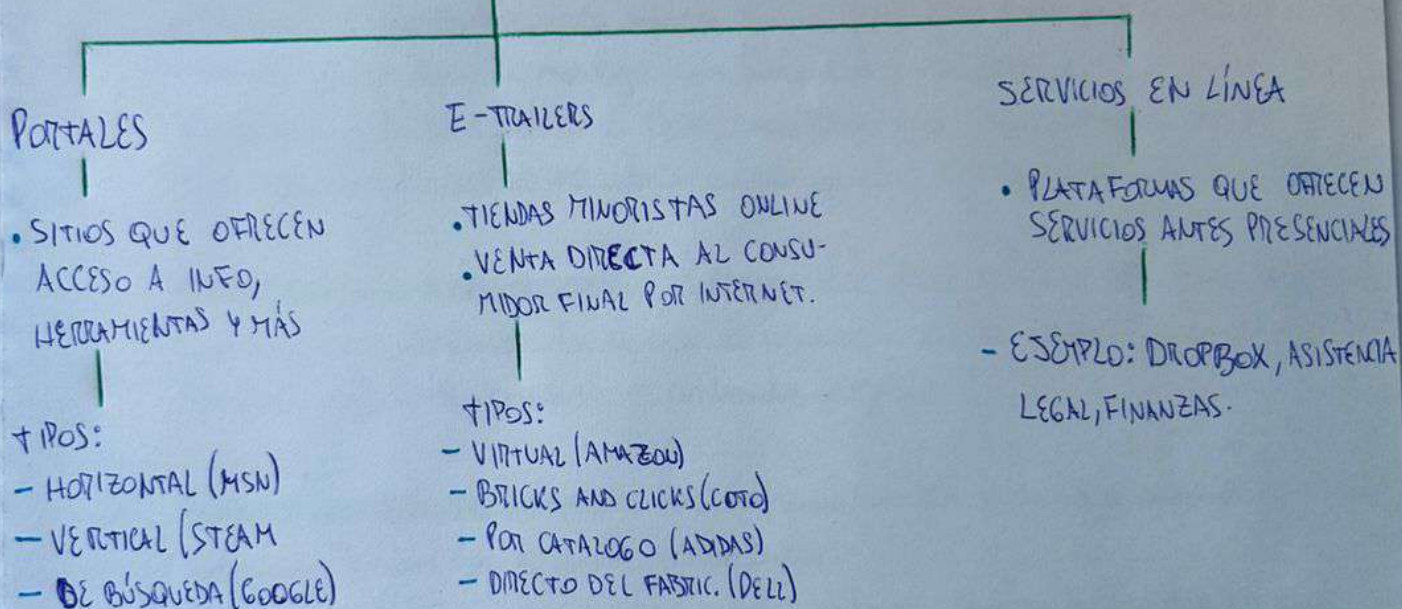 PORTALES
• SITIOS QUE OFRECEN
ACCESO A INFO,
HERRAMIENTAS Y MÁS
TIPOS:
- HORIZONTAL (MSN)
- VERTICAL (STEAM
- DE BÚSQUEDA (GOOGLE)
E-TRAILERS
• TIENDAS MINORISTAS ONLINE
• VENTA DIRECTA AL CONSU-
MIDOR FINAL POR INTERNET.
TIPOS:
- VIRTUAL (AMAZON)
- BRICKS AND CLICKS (COTO)
- POR CATALOGO (ADIDAS)
- DIRECTO DEL FABRIC. (DELL)
SERVICIOS EN LÍNEA
• PLATAFORMAS QUE OFRECEN
SERVICIOS ANTES PRESENCIALES
- EJEMPLO: DROPBOX, ASISTENCIA
LEGAL, FINANZAS.